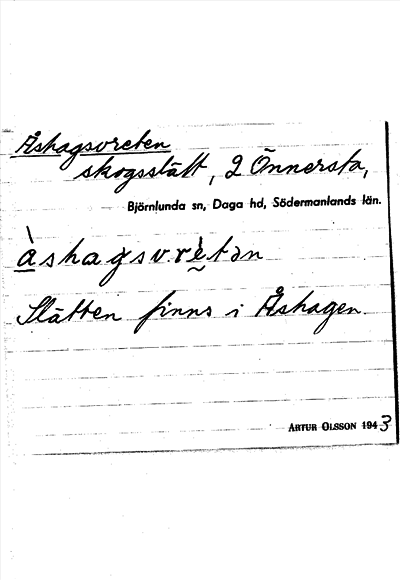 Åshagsvreten
skogsslätt, 2 Önnersta,
Björnlunda sn, Daga hd, Södermanlands län.
å̀shagsvrètən
Slätten finns i Åshagen.
ARTUR OLSSON 1943